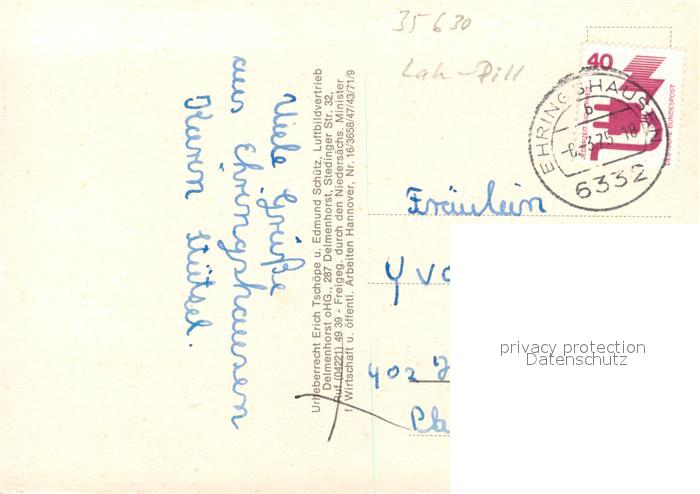 35630
Lah-Dill
Viele Grüße
aus Ehringshausen
Karin
Urheberrecht Erich Tschöpe u. Edmund Schütz, Luftbildvertrieb
Delmenhorst oHG., 287 Delmenhorst, Stedinger Str. 32,
Ruf (04221) 49 39 - Freigeg. durch den Niedersächs. Minister
f. Wirtschaft u. öffentl. Arbeiten Hannover, Nr. 16/3658/47/43/71/9
40
JEDERZEIT SICHERHEIT
DEUTSCHE BUNDESPOST
EHRINGSHAUSEN
b
-6.-3.75-18
6332
Fräulein
Yvo
402
Pla
privacy protection
Datenschutz